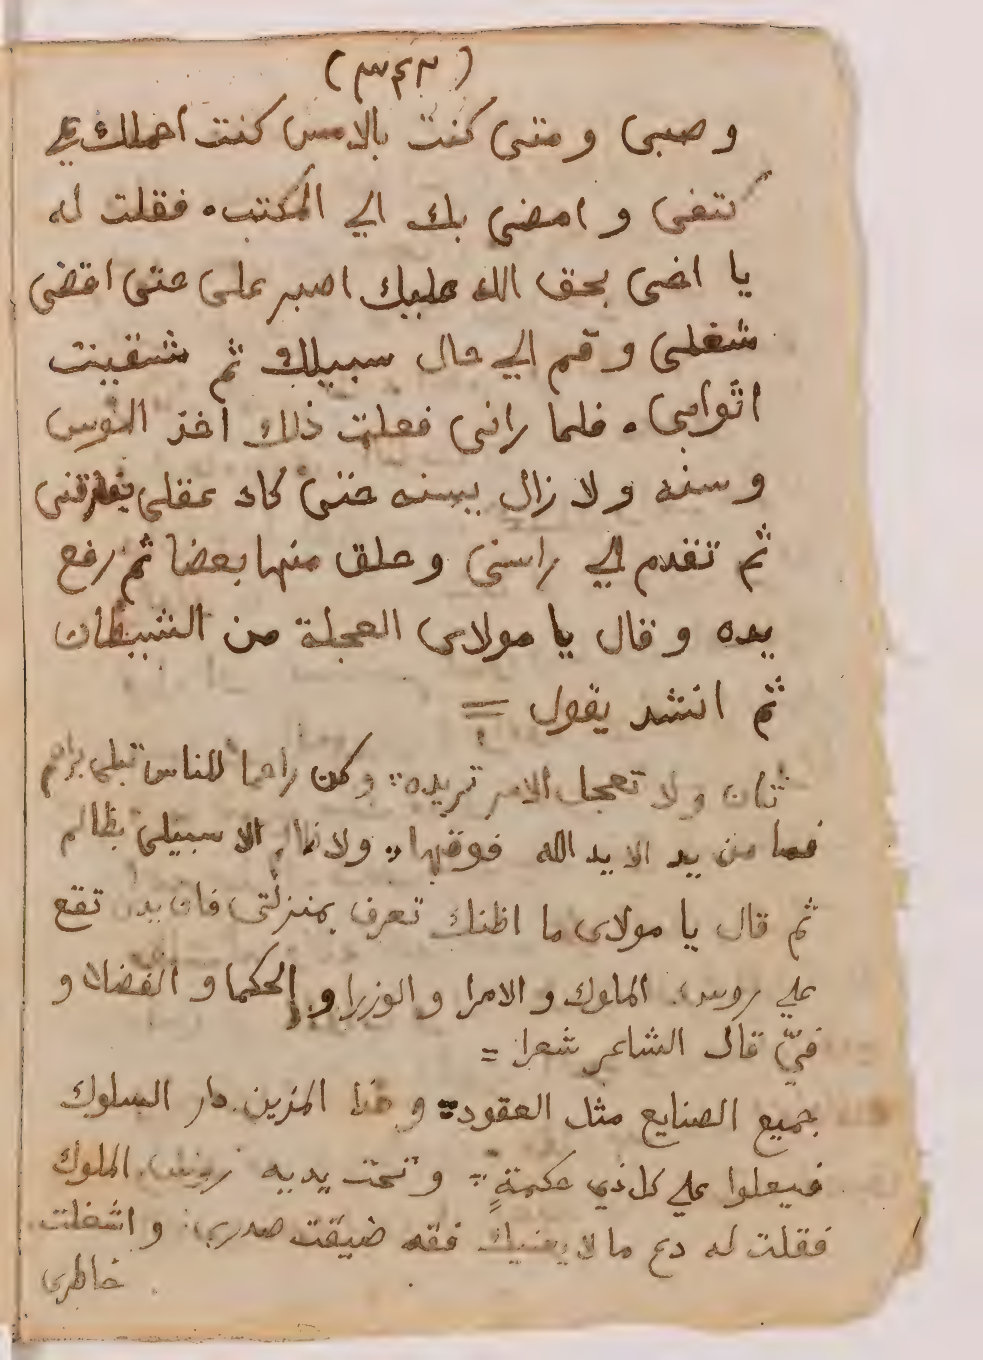 (٣٤٣)
وصبى ومتى كنت بالامس كنت احملك علي
كتفى و امضى بك الي المكتب. فقلت له
يا اخى بحق الله عليك اصبر على حتى اقضى
شغلى و قم الي حال سبيلك ثم شقيت
اثوابى. فلما رانى فعلت ذلك اخذ الموس
و سنه و لا زال يسنه حتى كاد عقلى يفارقنى
ثم تقدم الي راسى وحلق منها بعضا ثم رفع
يده و قال يا مولاى العجلة من الشيطان
ثم انشد يقول =
تأن و لا تعجل الامر تريده: وكن راحما للناس تبلى براحم
فما من يد الا يد الله فوقها: ولا ظالم الا سيبلى بظالم
ثم قال يا مولاى ما اظنك تعرف بمنزلتى فان يدى تقع
علي روس الملوك و الامرا و الوزرا و الحكما و الفضلا و
فيّ قال الشاعر شعرا =
جميع الصنايع مثل العقود: و هذا المزين دار السلوك
فيعلوا علي كل ذي حكمةٍ: و تحت يديه روس الملوك
فقلت له دع ما لا يعنيك فقد ضيقت صدرى و اشغلت
خاطرى